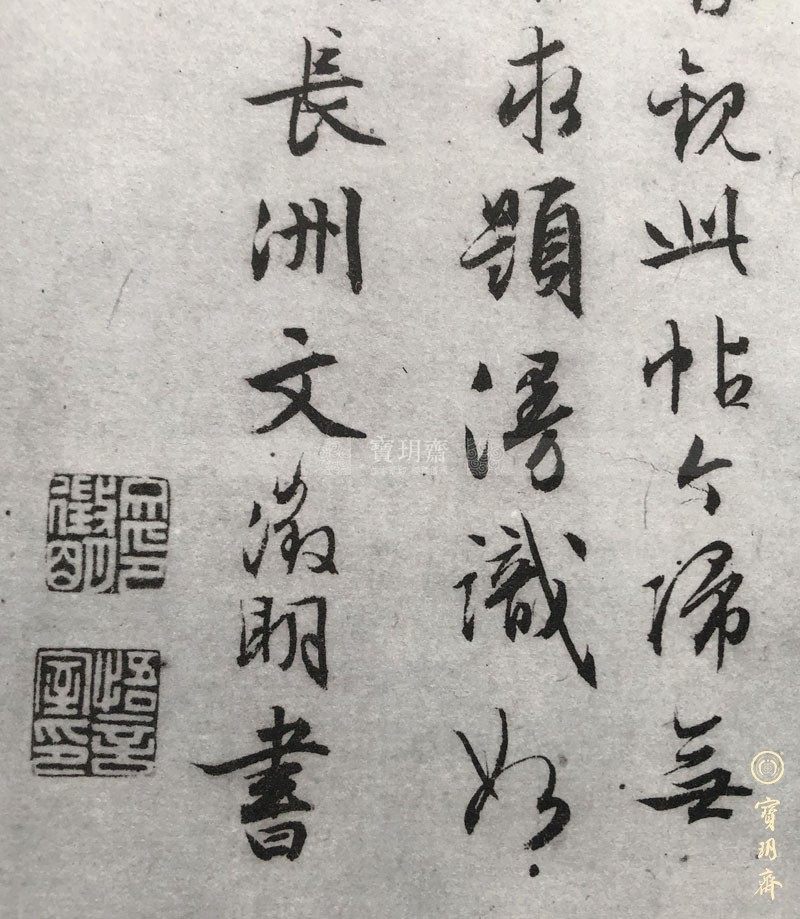 觀此帖今歸無
求題漫識如
長洲文徵明書
文徵明印
悟言室印
寶玥齋
寶玥齋